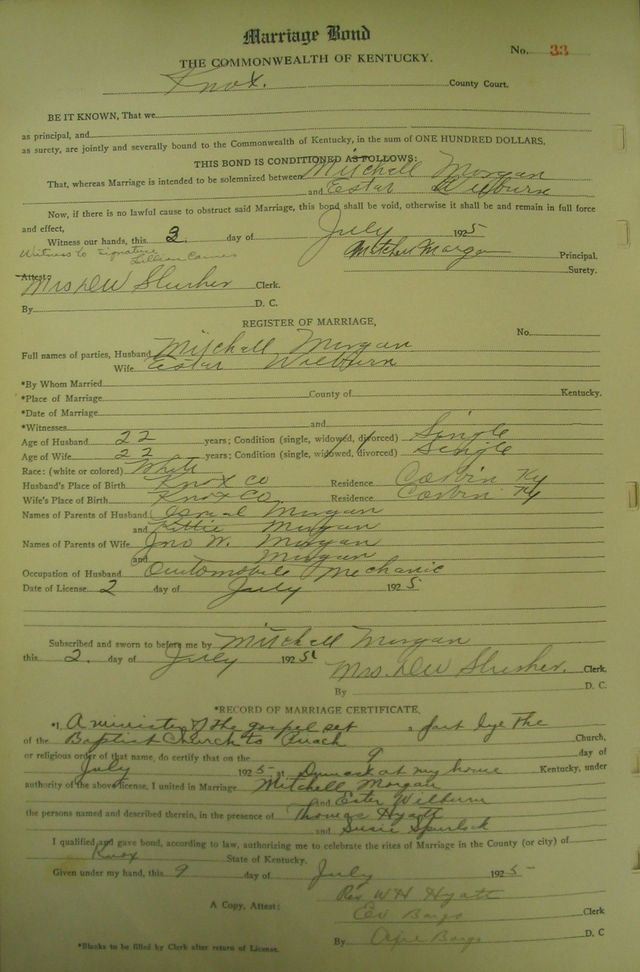 Marriage Bond
No. 33
THE COMMONWEALTH OF KENTUCKY.
Knox. County Court.
BE IT KNOWN, That we
as principal, and
as surety, are jointly and severally bound to the Commonwealth of Kentucky, in the sum of ONE HUNDRED DOLLARS.
THIS BOND IS CONDITIONED AS FOLLOWS:
That, whereas Marriage is intended to be solemnized between Mitchell Morgan
and Estar Wilburn
Now, if there is no lawful cause to obstruct said Marriage, this bond shall be void, otherwise it shall be and remain in full force
and effect,
Witness our hands, this 2. day of July 1925
Witness to signature Mitchell Morgan Principal.
Lillian
Surety.
Attest:
Mrs. D W Slusher Clerk.
By D. C.
REGISTER OF MARRIAGE,
No.
Full names of parties, Husband Mitchell Morgan
Wife Estar Wilburn
*By Whom Married
*Place of Marriage County of Kentucky.
*Date of Marriage
*Witnesses and
Age of Husband 22 years; Condition (single, widowed, divorced) Single
Age of Wife 22 years; Condition (single, widowed, divorced) Single
Race: (white or colored) White
Husband's Place of Birth Knox Co Residence Corbin Ky
Wife's Place of Birth Knox Co. Residence Corbin Ky
Names of Parents of Husband Morgan
and Morgan
Names of Parents of Wife Jno W. Morgan
and Morgan
Occupation of Husband Automobile Mechanic
Date of License 2 day of July 1925
Subscribed and sworn to before me by Mitchell Morgan
this 2. day of July 1925
Mrs. D W Slusher. Clerk.
By D. C.
*RECORD OF MARRIAGE CERTIFICATE,
*I, A minister of the gospel set , fart bye The
of the Baptist Church to Church,
or religious order of that name, do certify that on the 9 day of
July 1925 at at my home Kentucky, under
authority of the above license, I united in Marriage Mitchell Morgan
and Ester Wilburn
the persons named and described therein, in the presence of Thomas Hyatt
and Susie Spurlock
I qualified and gave bond, according to law, authorizing me to celebrate the rites of Marriage in the County (or city) of
Knox State of Kentucky.
Given under my hand, this 9 day of July 1925
Rev W H Hyatt
A Copy, Attest: Ev Bargo Clerk
By Bargo D. C
*Blanks to be filled by Clerk after return of License.